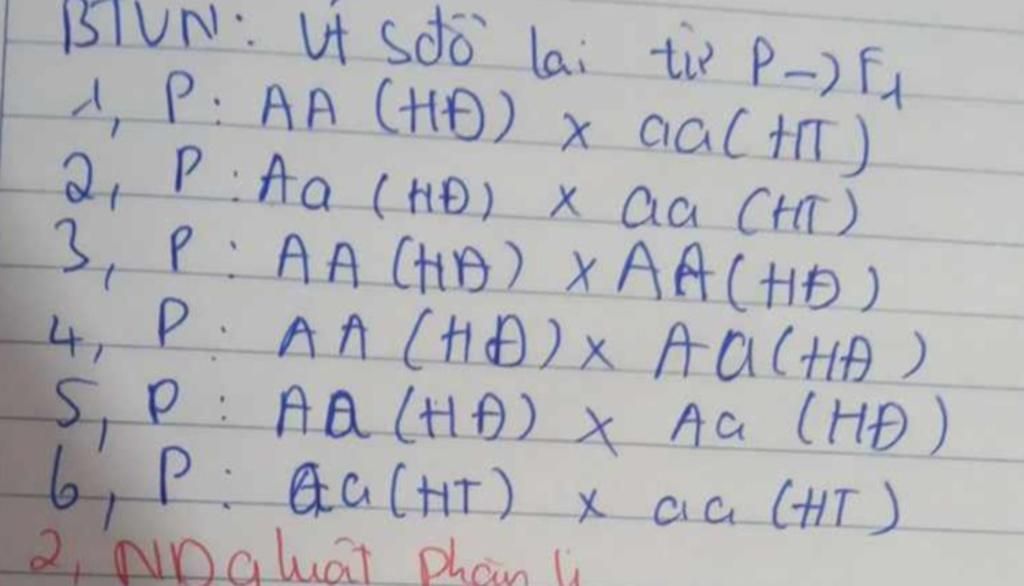 BTVN: Vt sđồ lai từ P→F1
1, P: AA (HĐ) x aa (HT)
2, P: Aa (HĐ) x aa (HT)
3, P: AA (HĐ) x AA (HĐ)
4, P: AA (HĐ) x Aa (HĐ)
5, P: Aa (HĐ) x Aa (HĐ)
6, P: aa (HT) x aa (HT)
2, ND qluật phân li